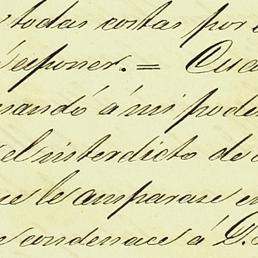 todas costas por
esponer. = Cua
mandó á mi pode
el interdicto de
ue le amparase en
e condenace á D.